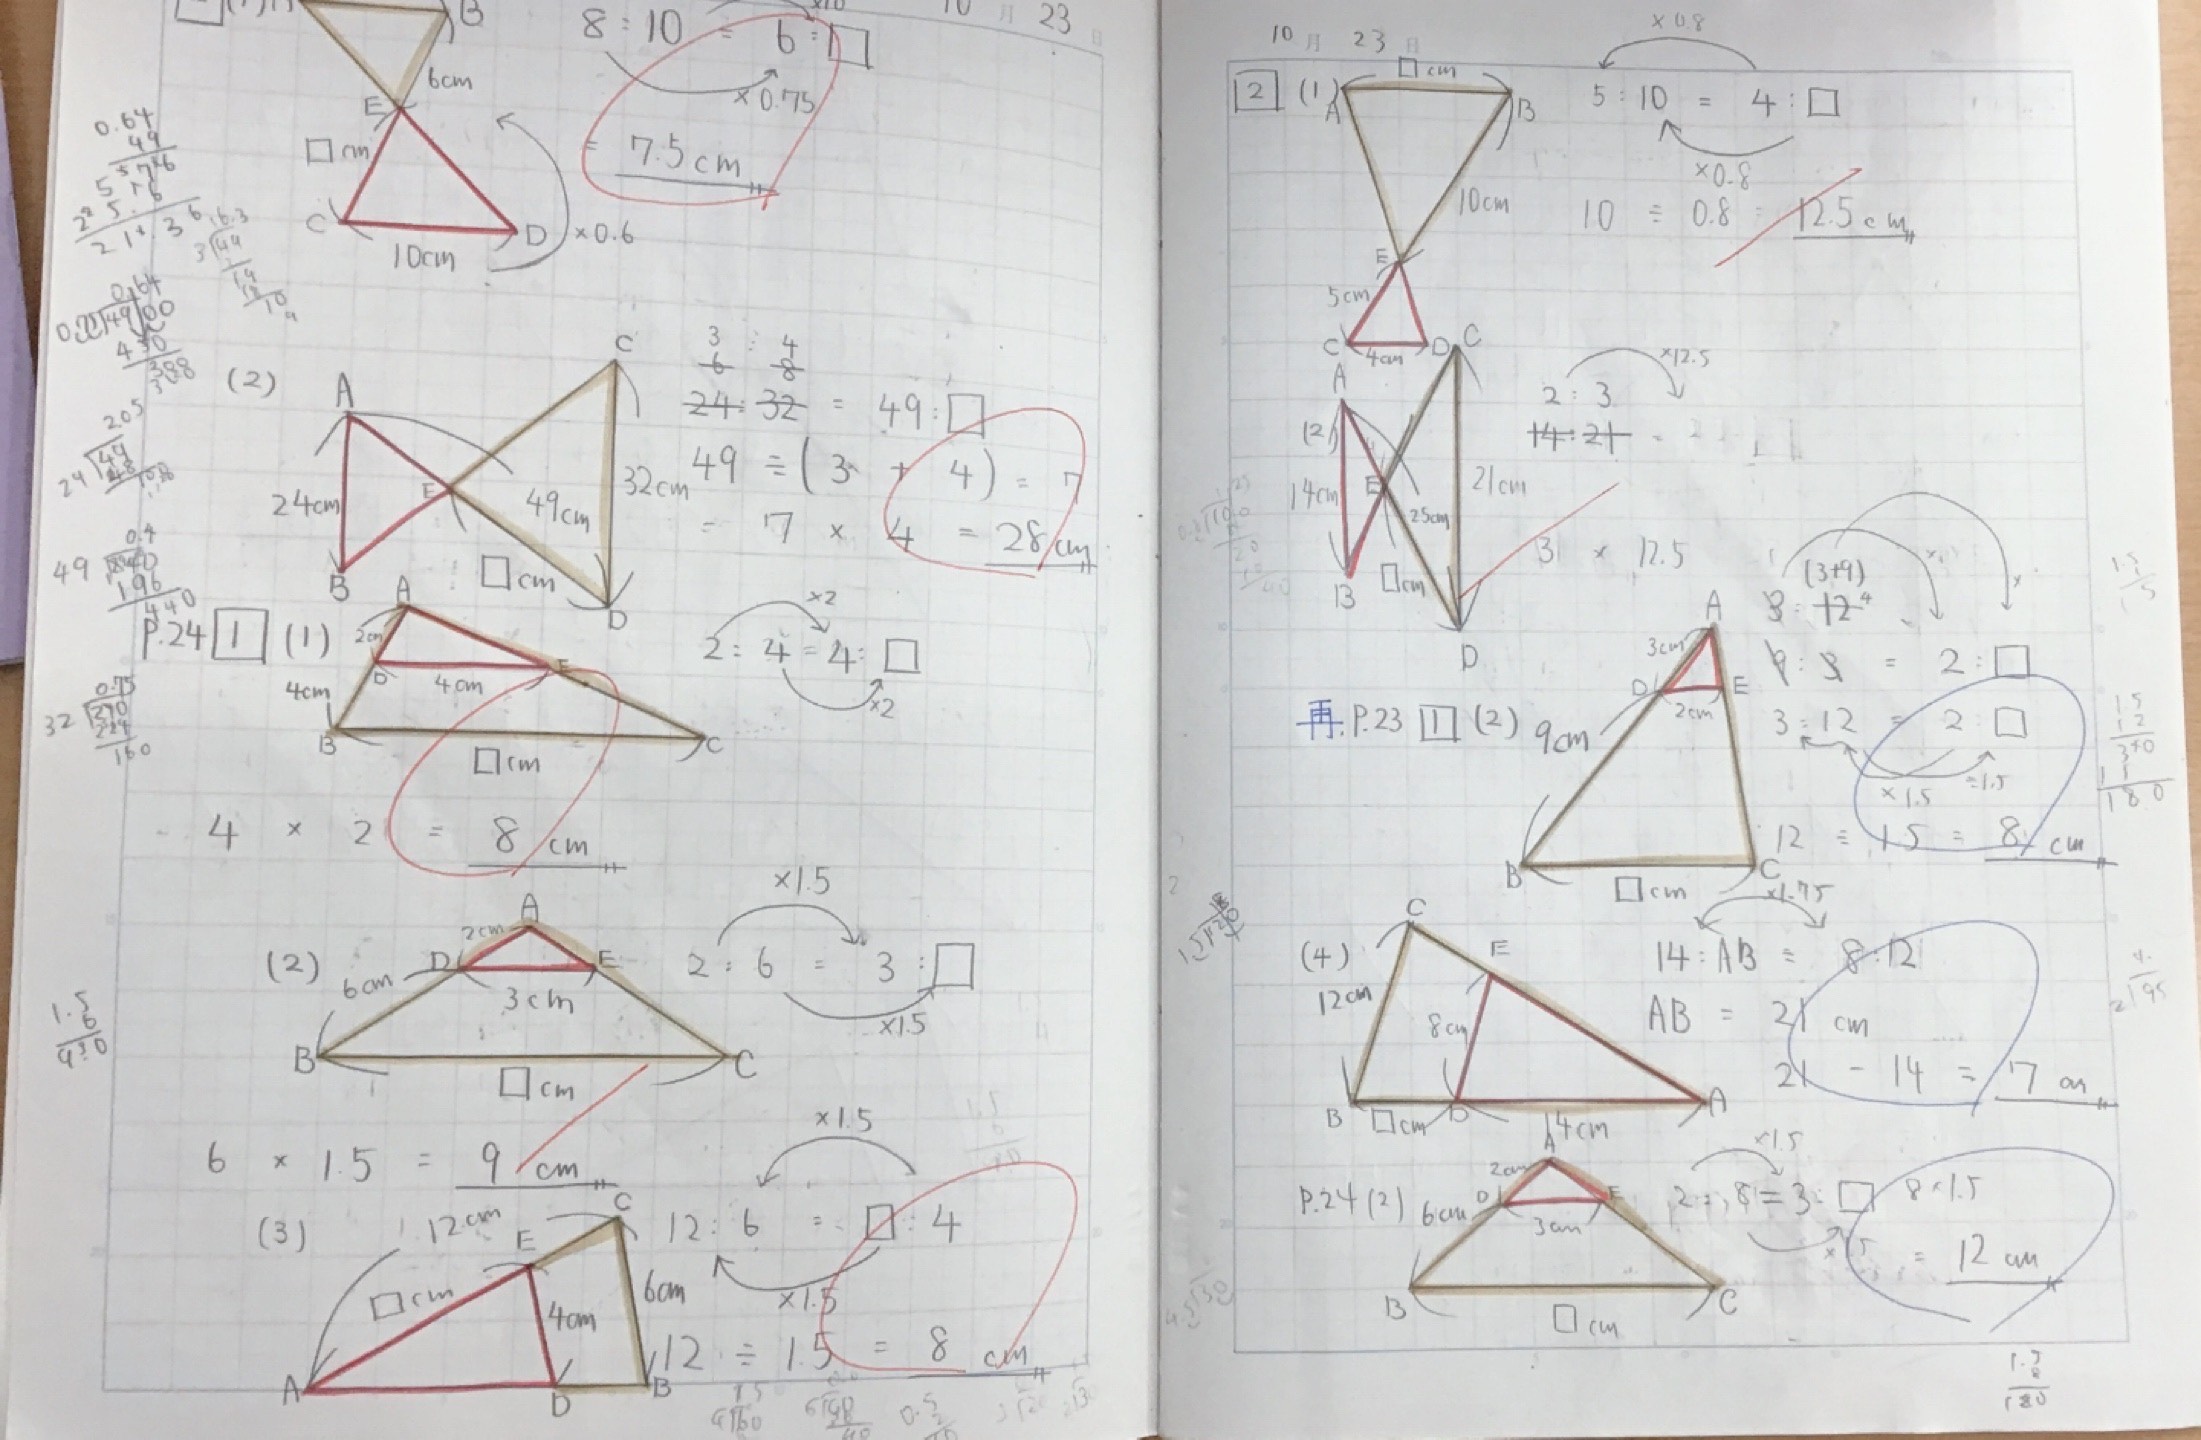 10月 23日
B
8 : 10 = 6 : □
×0.75
6cm
E
□cm
= 7.5cm
C
D
10cm
×0.6
(2)
A
C
3 : 4
6 8
24 : 32 = 49 : □
49 ÷ (3 + 4) = 7
24cm
E
49cm
32cm
= 7 × 4 = 28cm
□cm
B
D
P.24 1 (1)
A
2cm
×2
2 : 4 = 4 : □
×2
D
E
4cm
4cm
B
C
□cm
4 × 2 = 8 cm
(2)
A
2cm
×1.5
D
E
6cm
3cm
2 : 6 = 3 : □
×1.5
B
C
□cm
6 × 1.5 = 9 cm
(3)
12cm
C
E
×1.5
12 : 6 = □ : 4
×1.5
□cm
4cm
6cm
A
D
B
12 ÷ 1.5 = 8 cm
0.64
49
576
21.36
0.64
205
24
0.4
49
196
440
0.75
32
224
160
1.5
6
10月 23日
2 (1)
□cm
A
B
×0.8
5 : 10 = 4 : □
×0.8
10cm
10 ÷ 0.8 = 12.5cm
E
5cm
C
D
4cm
(2)
A
C
×12.5
2 : 3
14 : 21
14cm
E
25cm
21cm
□cm
B
D
3 × 12.5
再 P.23 1 (2)
A
3cm
(3+9)
3 : 12
9 : 3 = 2 : □
D
E
2cm
9cm
3 : 12 = 2 : □
×1.5
÷1.5
B
C
□cm
12 ÷ 1.5 = 8 cm
(4)
C
E
×1.75
14 : AB = 8 : 12
12cm
8cm
AB = 21 cm
21 - 14 = 7 cm
B
D
A
□cm
14cm
P.24 (2)
A
2cm
×1.5
D
E
6cm
3cm
2 : 8 = 3 : □
8×1.5
×1.5
= 12 cm
B
C
□cm